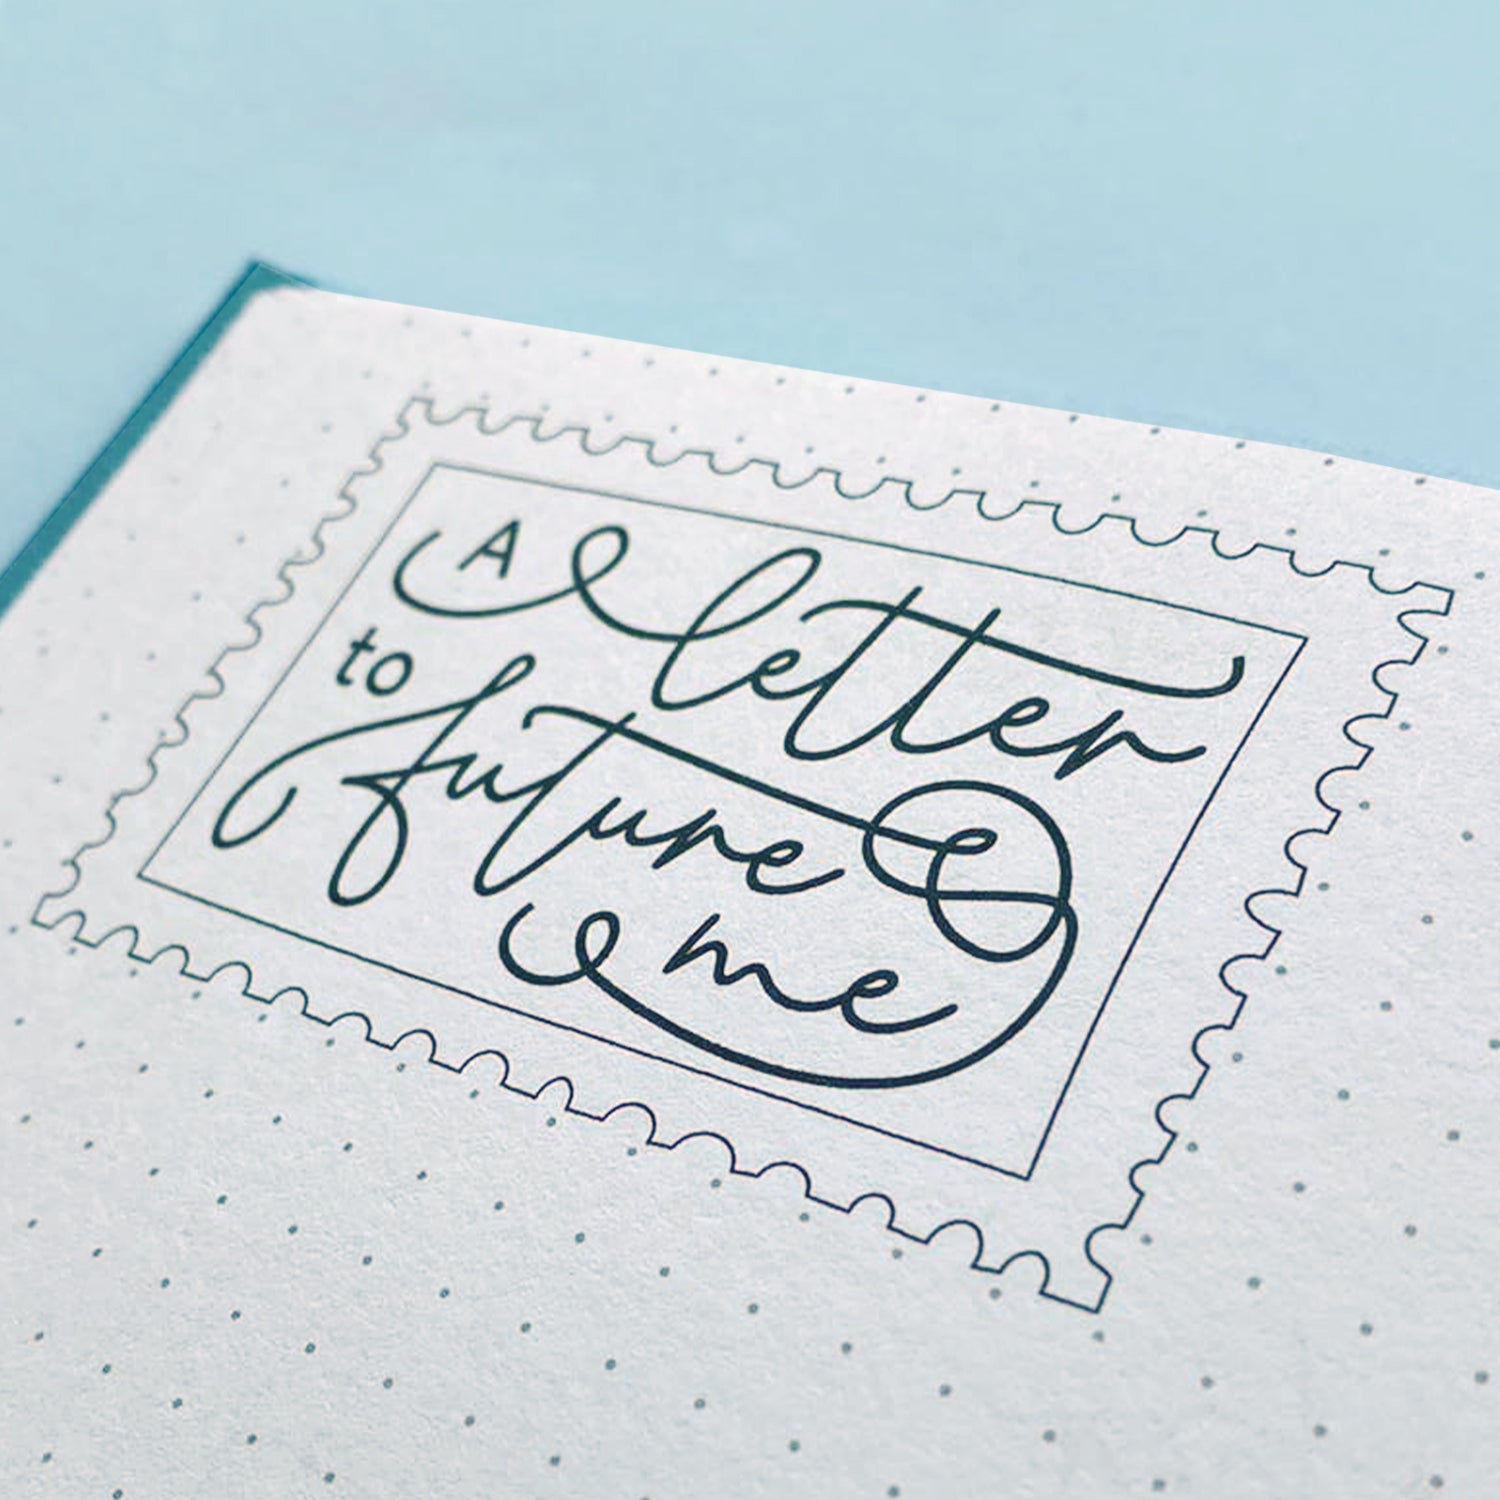 A letter
to future
me